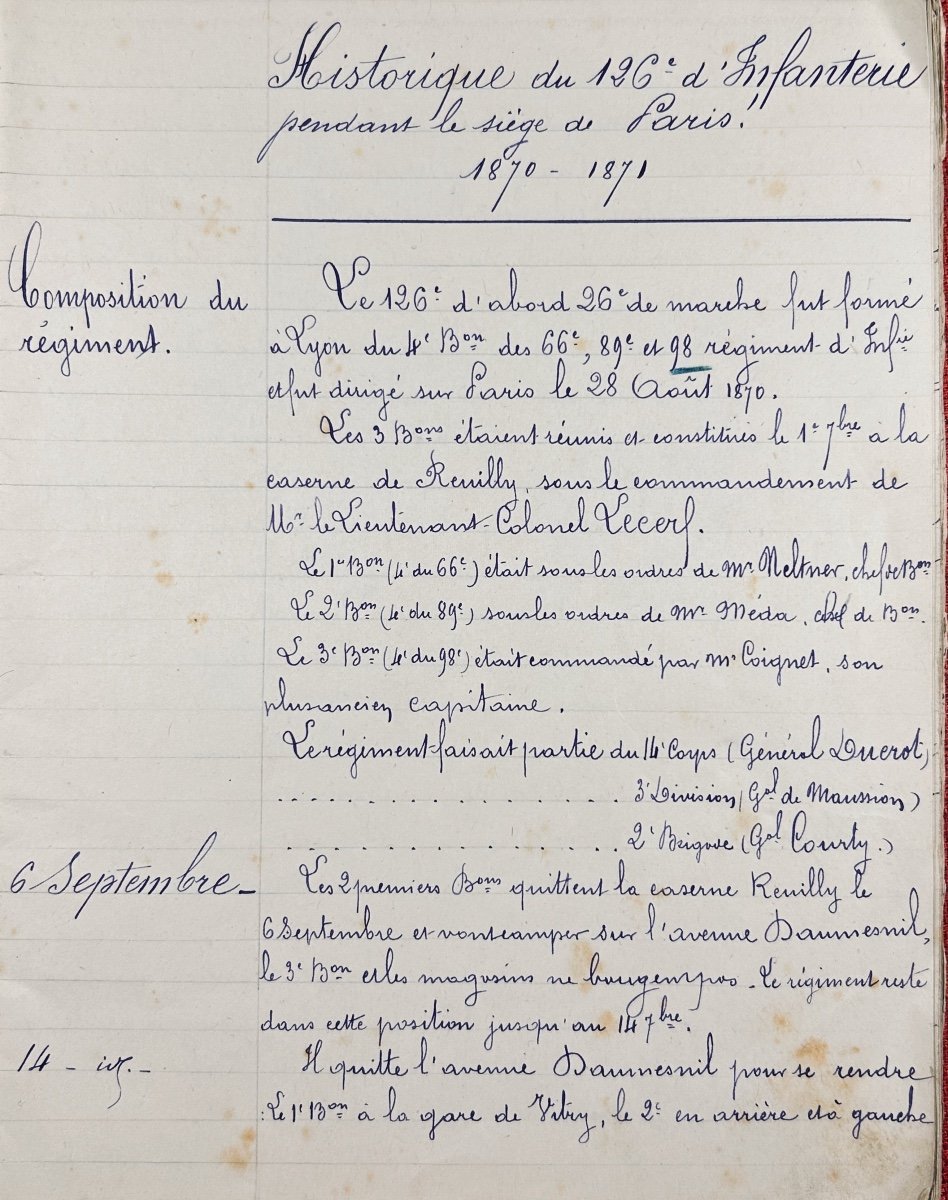 Historique du 126e d'Infanterie
pendant le siége de Paris.
1870 - 1871
Composition du
régiment.
Le 126e d'abord 26e de marche fut formé
à Lyon du 4e Bon des 66e, 89e et 98 régiment d'Infrie
et fut dirigé sur Paris le 28 Août 1870.
Les 3 Bons étaient réunis et constitués le 1er 7bre à la
caserne de Reuilly, sous le commandement de
Mr le Lieutenant-Colonel Lecerf.
Le 1er Bon (4e du 66e) était sous les ordres de Mr Meltner, chef de Bon
Le 2e Bon (4e du 89e) sous les ordres de Mr Méda, chef de Bon.
Le 3e Bon (4e du 98e) était commandé par Mr Coignet, son
plus ancien capitaine.
Le régiment faisait partie du 14e Corps (Général Ducrot)
. . . . . . . . . . . . . . . . . . 3e Division (Gal de Maussion)
. . . . . . . . . . . . . . . . . . 2e Brigade (Gal Courty.)
6 Septembre -
Les 2 premiers Bons quittent la caserne Reuilly le
6 Septembre et vont camper sur l'avenue Daumesnil,
le 3e Bon et les magasins ne bougent pas - Le régiment reste
dans cette position jusqu'au 14 7bre.
14 - id. -
Il quitte l'avenue Daumesnil pour se rendre
: Le 1er Bon à la gare de Vitry, le 2e en arrière et à gauche